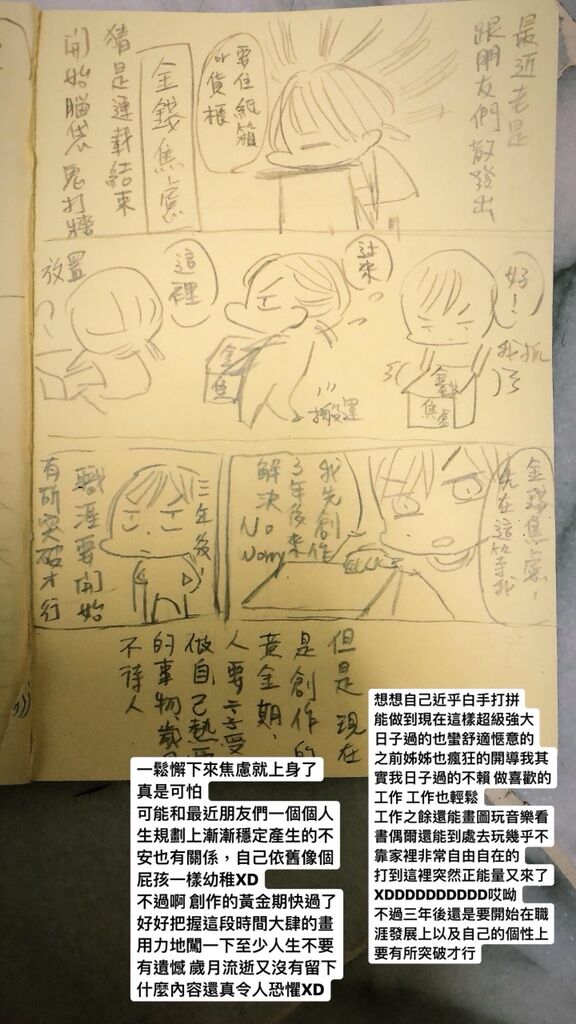 最近老是
跟朋友們散發出
要住紙箱
or貨櫃
金錢焦慮
猜是連載結束
開始腦袋鬼打牆
好!
我抓
金錢
焦慮
過來
金
焦
搬運
這裡
放置
金錢焦慮,
先在這等我
我先創作
3年後來
解決
No
Worry
三年後!
職涯要開始
有所突破才行
但是現在
是創作的
黃金期,
人要享受
做自己熱愛
的事物,歲月
不待人
一鬆懈下來焦慮就上身了
真是可怕
可能和最近朋友們一個個人
生規劃上漸漸穩定產生的不
安也有關係,自己依舊像個
屁孩一樣幼稚XD
不過啊 創作的黃金期快過了
好好把握這段時間大肆的畫
用力地闖一下至少人生不要
有遺憾 歲月流逝又沒有留下
什麼內容還真令人恐懼XD
想想自己近乎白手打拼
能做到現在這樣超級強大
日子過的也蠻舒適愜意的
之前姊姊也瘋狂的開導我其
實我日子過的不賴 做喜歡的
工作 工作也輕鬆
工作之餘還能畫圖玩音樂看
書偶爾還能到處去玩幾乎不
靠家裡非常自由自在的
打到這裡突然正能量又來了
XDDDDDDDDDD哎呦
不過三年後還是要開始在職
涯發展上以及自己的個性上
要有所突破才行